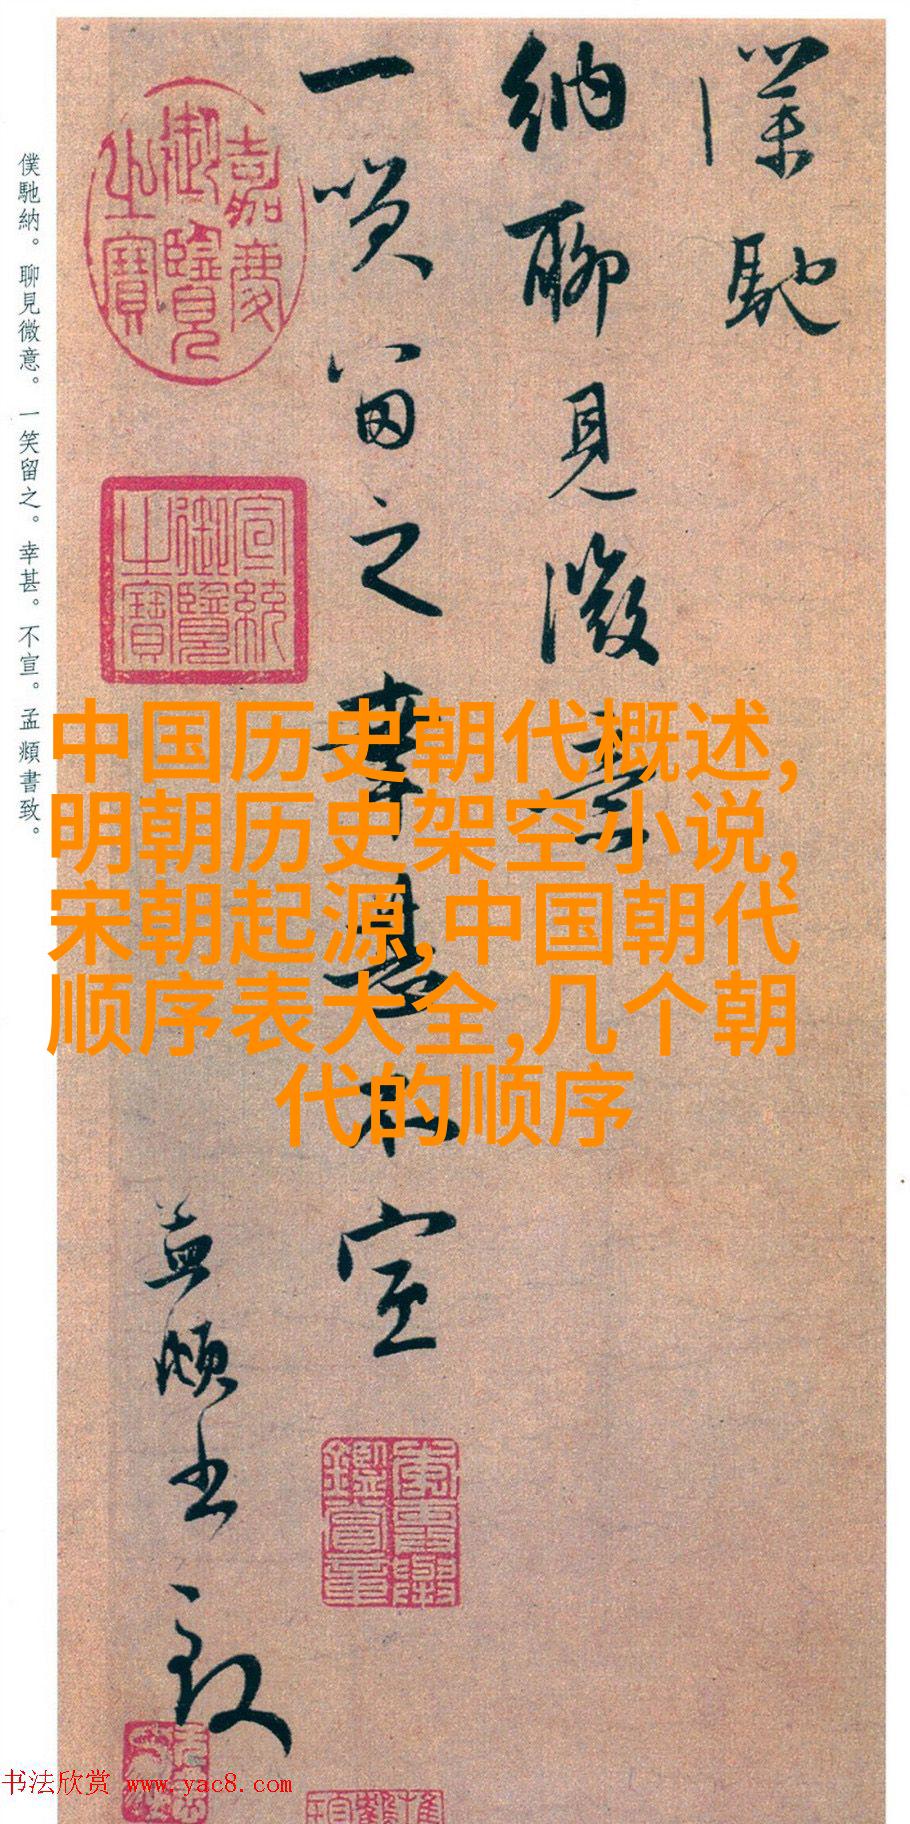 僕馳
納聊見微意
一笑留之幸甚不宣
孟頫書致
嘉慶
御覽
之寶
宣統
御覽
之寶
僕馳納。聊見微意。一笑留之。幸甚。不宣。孟頫書致。
中国历史朝代概述,
明朝历史架空小说,
宋朝起源,中国朝代
顺序表大全,几个朝
代的顺序
书法欣赏 www.yac8.com